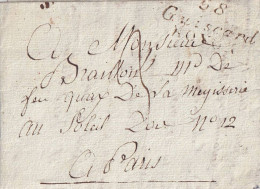 58
Guiscard
A Monsieur
Braillon md De
feu quay De la megisserie
au Soleil Dor no 12
A Paris